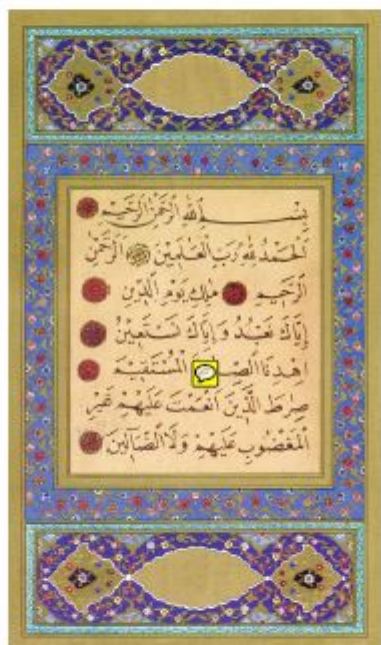 بِسْمِ اللهِ الرَّحْمٰنِ الرَّحِيمِ
اَلْحَمْدُ لِلّٰهِ رَبِّ الْعَالَمِينَ اَلرَّحْمٰنِ
الرَّحِيمِ مَالِكِ يَوْمِ الدِّينِ
اِيَّاكَ نَعْبُدُ وَاِيَّاكَ نَسْتَعِينُ
اِهْدِنَا الْمُسْتَقِيمَ
صِرَاطَ الَّذِينَ اَنْعَمْتَ عَلَيْهِمْ غَيْرِ
الْمَغْضُوبِ عَلَيْهِمْ وَلَا الضَّالِّينَ